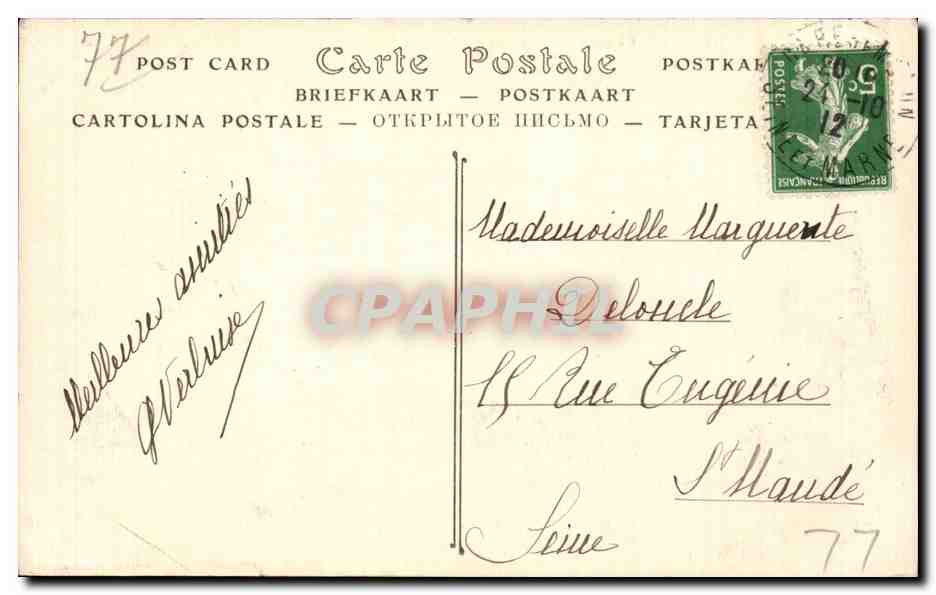 77
POST CARD Carte Postale POSTKA
BRIEFKAART — POSTKAART
CARTOLINA POSTALE — ОТКРЫТОЕ ПИСЬМО — TARJETA
5 c
POSTES
REPUBLIQUE FRANÇAISE
24 -10
12
ET MARNE
Meilleures amitiés
Mademoiselle Marguerite
15 Rue Eugénie
St Mandé
Seine
77
CPAPHIL